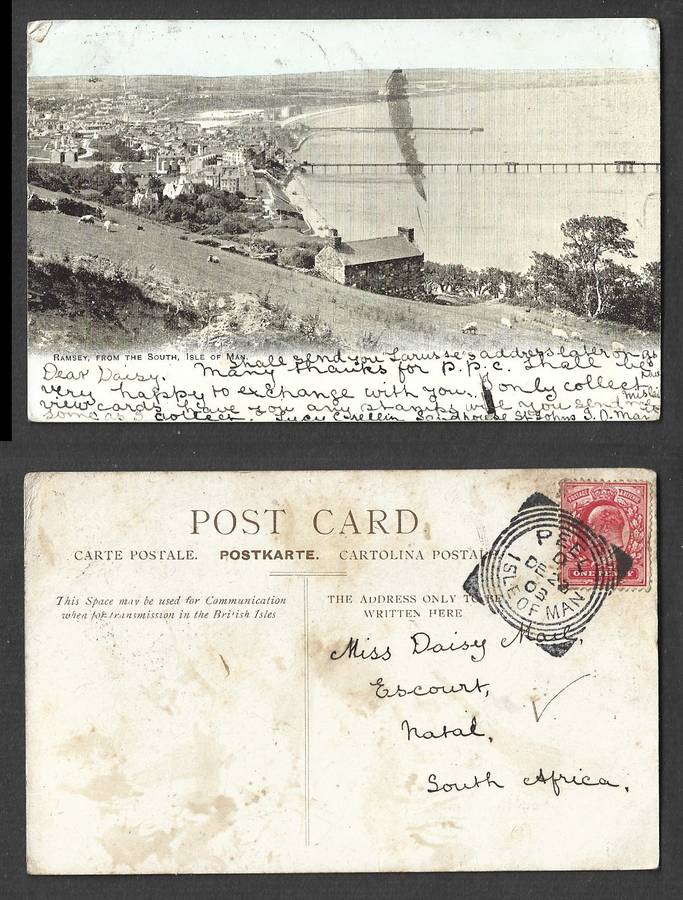 RAMSEY, FROM THE SOUTH, ISLE OF MAN.
Shall send you Larusse's address later on as
Dear Daisy. Many thanks for p.p.c. Shall be
very happy to exchange with you. I only collect
view cards. Have you any stamps will you send me
some as I collect. Lucy Crellin Sandhouse St Johns I.O. Man
POST CARD
CARTE POSTALE. POSTKARTE. CARTOLINA POSTAL
This Space may be used for Communication
when for transmission in the British Isles
THE ADDRESS ONLY TO BE
WRITTEN HERE
POSTAGE & REVENUE
ONE
PEEL
DE 28
03
ISLE OF MAN
Miss Daisy Mail,
Escourt,
Natal,
South Africa.